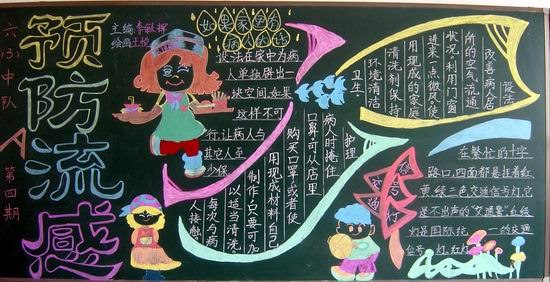 六(3)中队
第四期
预防流感
主编:李敏挥
绘画:王悦
如果家里有
病人的话
设法在家中为病
人单独辟出一
块空间,如果
这样不可
行,让病人与
其它人至
少保
设法
改善病人居
所的空气流通
状况,利用门窗
进来一点微风,使
用现成的家庭
清洗剂保持
环境清洁
卫生.
护理
病人时掩住
口鼻,可从店里
购买口罩,或者使
用现成材料自己
制作,只要可加
以适当清洗.
每次与病
人接触.
在繁忙的十字
路口,四面都悬挂着红
黄、绿三色交通信号灯,它
是不出声的“交通警”。红绿
灯是国际统一的交通
信号灯,红灯